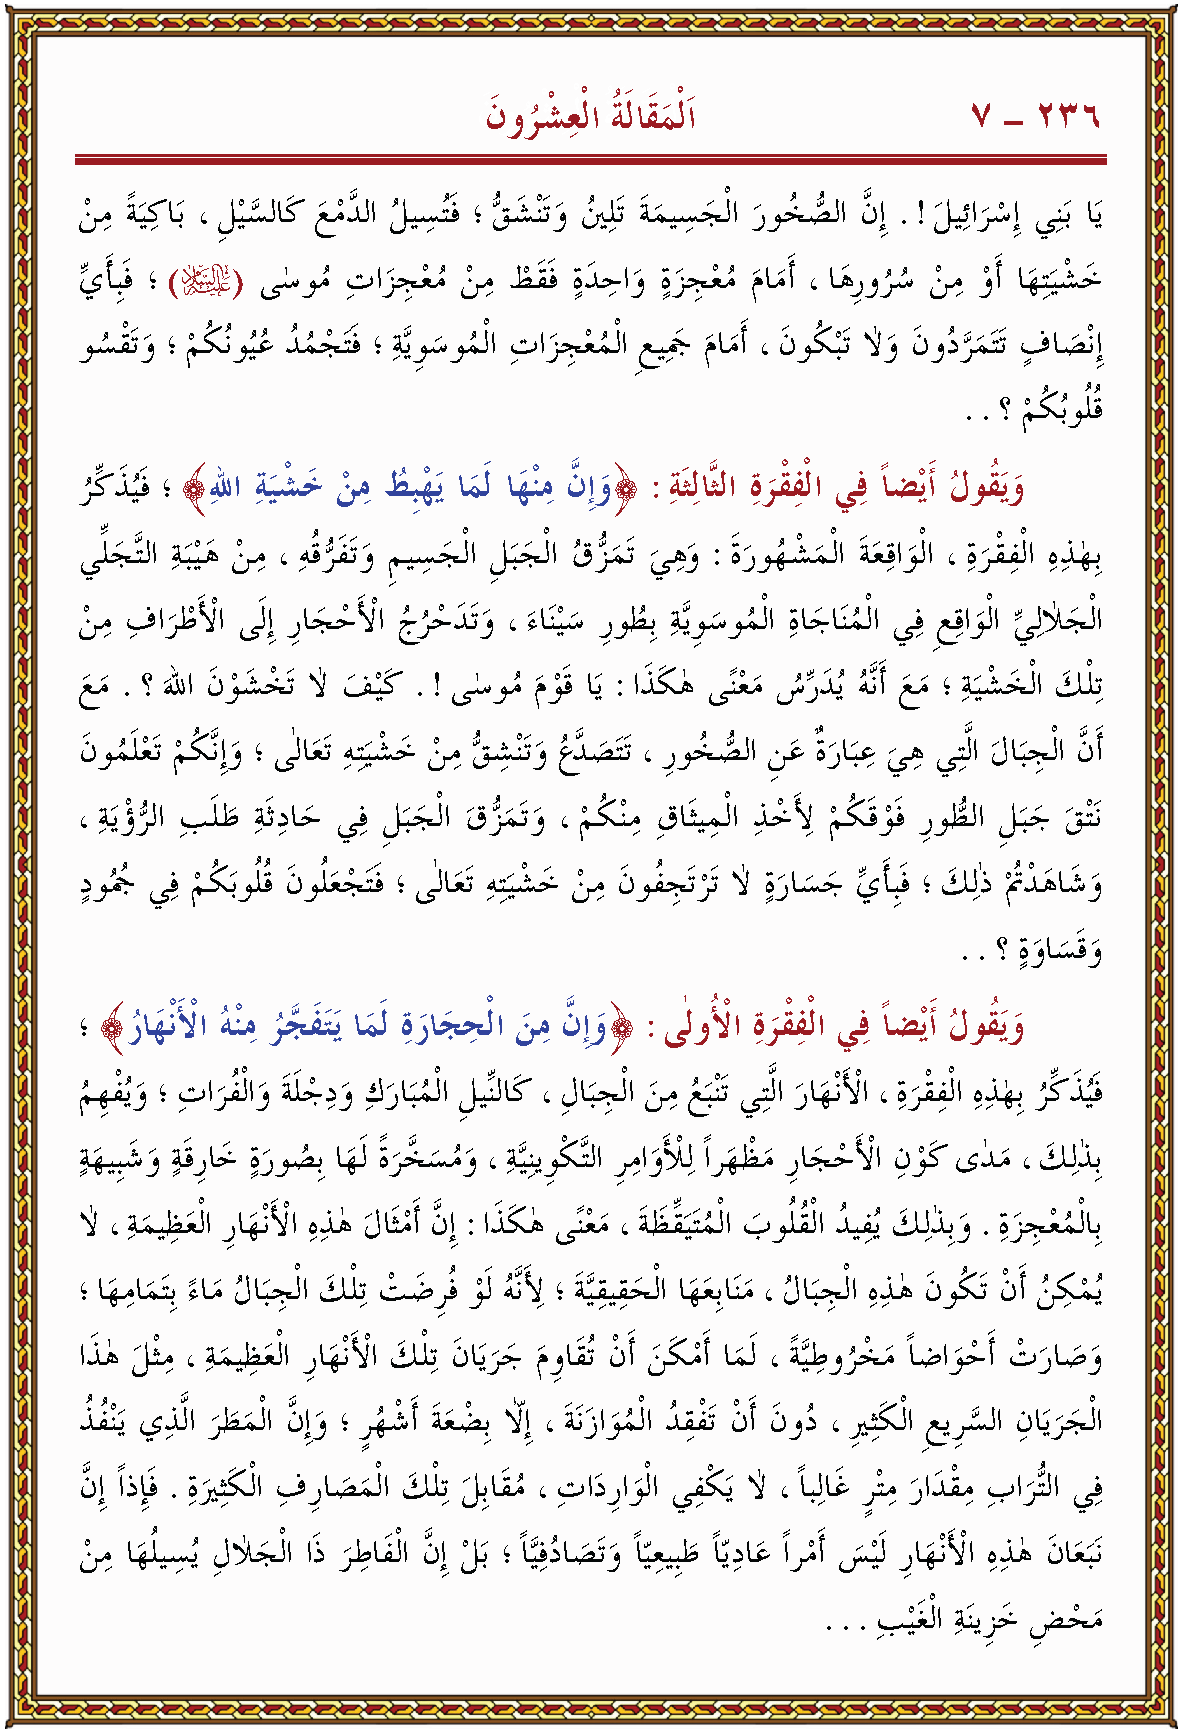 ٢٣٦ – ٧ اَلْمَقَالَةُ الْعِشْرُونَ
يَا بَنِي إِسْرَائِيلَ ! . إِنَّ الصُّخُورَ الْجَسِيمَةَ تَلِينُ وَتَنْشَقُّ ؛ فَتُسِيلُ الدَّمْعَ كَالسَّيْلِ ، بَاكِيَةً مِنْ
خَشْيَتِهَا أَوْ مِنْ سُرُورِهَا ، أَمَامَ مُعْجِزَةٍ وَاحِدَةٍ فَقَطْ مِنْ مُعْجِزَاتِ مُوسٰى (عليه السلام) ؛ فَبِأَيِّ
إِنْصَافٍ تَتَمَرَّدُونَ وَلَا تَبْكُونَ ، أَمَامَ جَمِيعِ الْمُعْجِزَاتِ الْمُوسَوِيَّةِ ؛ فَتَجْمُدُ عُيُونُكُمْ ؛ وَتَقْسُو
قُلُوبُكُمْ ؟ . .
وَيَقُولُ أَيْضاً فِي الْفِقْرَةِ الثَّالِثَةِ : ﴿وَإِنَّ مِنْهَا لَمَا يَهْبِطُ مِنْ خَشْيَةِ اللهِ﴾ ؛ فَيُذَكِّرُ
بِهٰذِهِ الْفِقْرَةِ ، الْوَاقِعَةَ الْمَشْهُورَةَ : وَهِيَ تَمَزُّقُ الْجَبَلِ الْجَسِيمِ وَتَفَرُّقُهِ ، مِنْ هَيْبَةِ التَّجَلِّي
الْجَلَالِيِّ الْوَاقِعِ فِي الْمُنَاجَاةِ الْمُوسَوِيَّةِ بِطُورِ سَيْنَاءَ ، وَتَدَحْرُجُ الْأَحْجَارِ إِلَى الْأَطْرَافِ مِنْ
تِلْكَ الْخَشْيَةِ ؛ مَعَ أَنَّهُ يُدَرِّسُ مَعْنًى هٰكَذَا : يَا قَوْمَ مُوسٰى ! . كَيْفَ لَا تَخْشَوْنَ اللهَ ؟ . مَعَ
أَنَّ الْجِبَالَ الَّتِي هِيَ عِبَارَةٌ عَنِ الصُّخُورِ ، تَتَصَدَّعُ وَتَنْشِقُّ مِنْ خَشْيَتِهِ تَعَالٰى ؛ وَإِنَّكُمْ تَعْلَمُونَ
نَتْقَ جَبَلِ الطُّورِ فَوْقَكُمْ لِأَخْذِ الْمِيثَاقِ مِنْكُمْ ، وَتَمَزُّقَ الْجَبَلِ فِي حَادِثَةِ طَلَبِ الرُّؤْيَةِ ،
وَشَاهَدْتُمْ ذٰلِكَ ؛ فَبِأَيِّ جَسَارَةٍ لَا تَرْتَجِفُونَ مِنْ خَشْيَتِهِ تَعَالٰى ؛ فَتَجْعَلُونَ قُلُوبَكُمْ فِي جُمُودٍ
وَقَسَاوَةٍ ؟ . .
وَيَقُولُ أَيْضاً فِي الْفِقْرَةِ الْأُولٰى : ﴿وَإِنَّ مِنَ الْحِجَارَةِ لَمَا يَتَفَجَّرُ مِنْهُ الْأَنْهَارُ﴾ ؛
فَيُذَكِّرُ بِهٰذِهِ الْفِقْرَةِ ، الْأَنْهَارَ الَّتِي تَنْبَعُ مِنَ الْجِبَالِ ، كَالنِّيلِ الْمُبَارَكِ وَدِجْلَةَ وَالْفُرَاتِ ؛ وَيُفْهِمُ
بِذٰلِكَ ، مَدٰى كَوْنِ الْأَحْجَارِ مَظْهَراً لِلْأَوَامِرِ التَّكْوِينِيَّةِ ، وَمُسَخَّرَةً لَهَا بِصُورَةٍ خَارِقَةٍ وَشَبِيهَةٍ
بِالْمُعْجِزَةِ . وَبِذٰلِكَ يُفِيدُ الْقُلُوبَ الْمُتَيَقِّظَةَ ، مَعْنًى هٰكَذَا : إِنَّ أَمْثَالَ هٰذِهِ الْأَنْهَارِ الْعَظِيمَةِ ، لَا
يُمْكِنُ أَنْ تَكُونَ هٰذِهِ الْجِبَالُ ، مَنَابِعَهَا الْحَقِيقِيَّةَ ؛ لِأَنَّهُ لَوْ فُرِضَتْ تِلْكَ الْجِبَالُ مَاءً بِتَمَامِهَا ؛
وَصَارَتْ أَحْوَاضاً مَخْرُوطِيَّةً ، لَمَا أَمْكَنَ أَنْ تُقَاوِمَ جَرَيَانَ تِلْكَ الْأَنْهَارِ الْعَظِيمَةِ ، مِثْلَ هٰذَا
الْجَرَيَانِ السَّرِيعِ الْكَثِيرِ ، دُونَ أَنْ تَفْقِدُ الْمُوَازَنَةَ ، إِلَّا بِضْعَةَ أَشْهُرٍ ؛ وَإِنَّ الْمَطَرَ الَّذِي يَنْفُذُ
فِي التُّرَابِ مِقْدَارَ مِتْرٍ غَالِباً ، لَا يَكْفِي الْوَارِدَاتِ ، مُقَابِلَ تِلْكَ الْمَصَارِفِ الْكَثِيرَةِ . فَإِذاً إِنَّ
نَبَعَانَ هٰذِهِ الْأَنْهَارِ لَيْسَ أَمْراً عَادِيّاً طَبِيعِيّاً وَتَصَادُفِيّاً ؛ بَلْ إِنَّ الْفَاطِرَ ذَا الْجَلَالِ يُسِيلُهَا مِنْ
مَحْضِ خَزِينَةِ الْغَيْبِ . . .